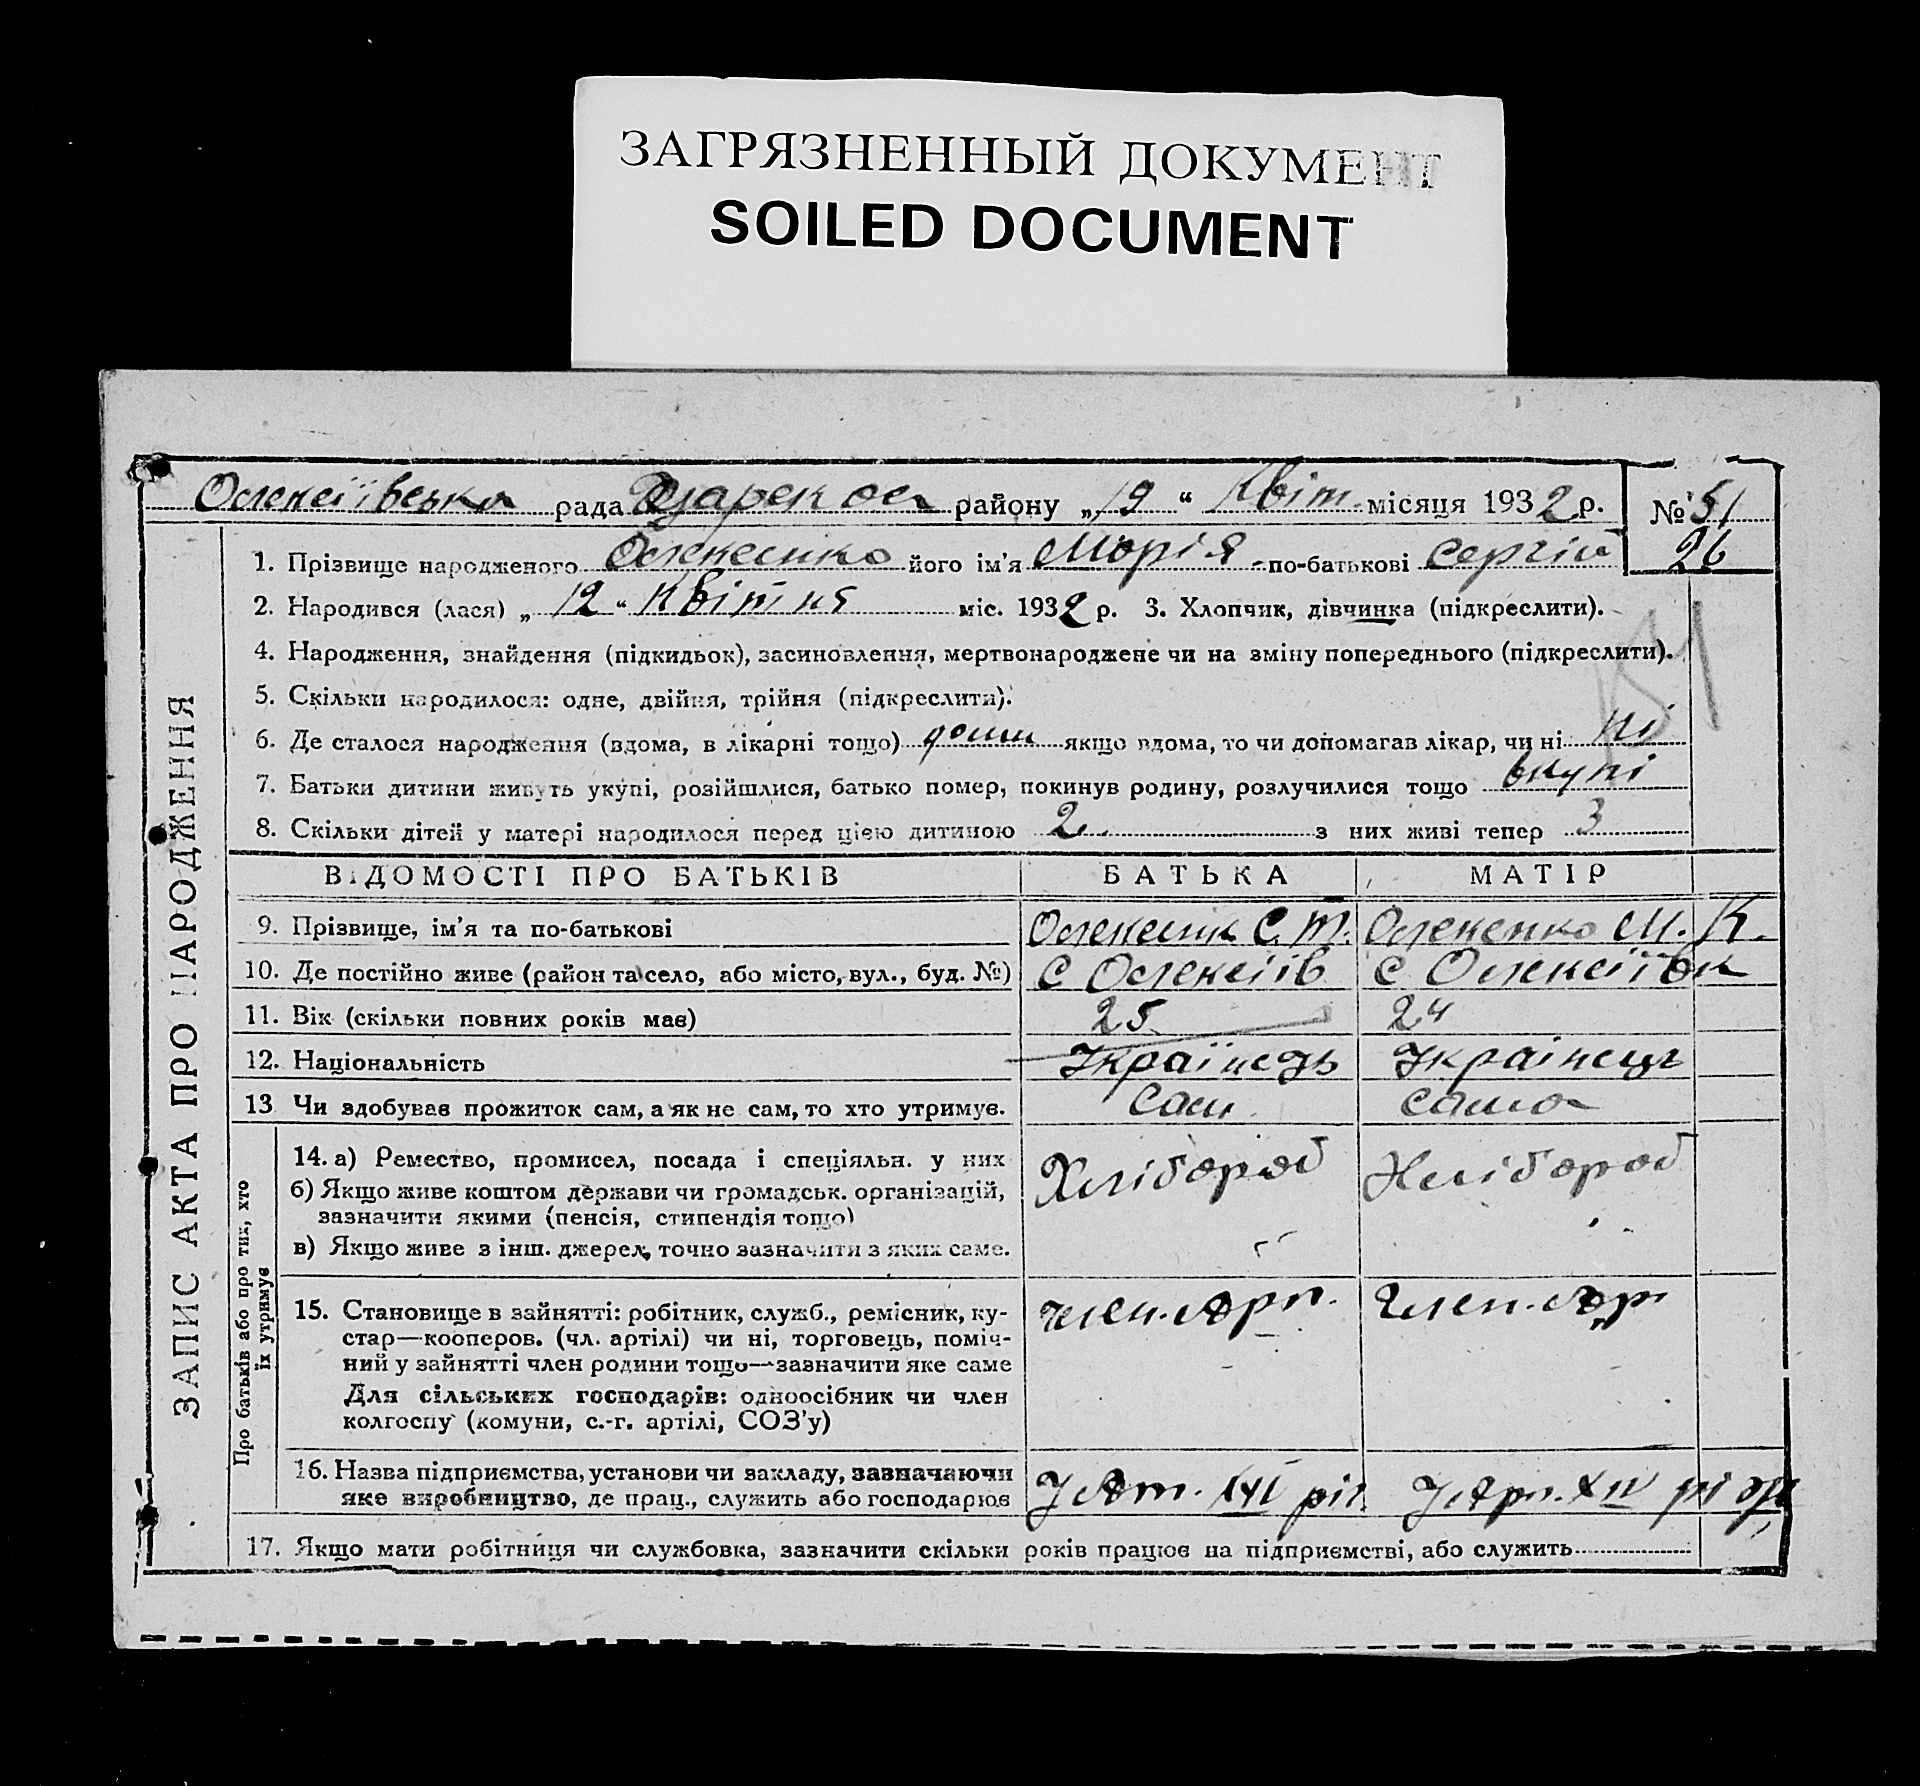 ЗАГРЯЗНЕННЫЙ ДОКУМЕНТ
SOILED DOCUMENT
Олексіївська рада району „19“ Квіт. місяця 1932 р. № 51
26
1. Прізвище народженого його ім'я Марія по-батькові Сергій
2. Народився (лася) „12“ Квітня міс. 1932 р. 3. Хлопчик, дівчинка (підкреслити).
4. Народження, знайдення (підкидьок), засиновлення, мертвонароджене чи на зміну попереднього (підкреслити).
5. Скільки народилося: одне, двійня, трійня (підкреслити).
6. Де сталося народження (вдома, в лікарні тощо) дома якщо вдома, то чи допомагав лікар, чи ні ні
7. Батьки дитини живуть укупі, розійшлися, батько помер, покинув родину, розлучилися тощо вкупі
8. Скільки дітей у матері народилося перед цією дитиною 2 з них живі тепер 3
ЗАПИС АКТА ПРО НАРОДЖЕННЯ
ВІДОМОСТІ ПРО БАТЬКІВ БАТЬКА МАТІР
9. Прізвище, ім'я та по-батькові С. Т. М. К.
10. Де постійно живе (район та село, або місто, вул., буд. №) с Олексіїв с Олексіївк
11. Вік (скільки повних років має) 25 24
12. Національність Українець Українець
13 Чи здобував прожиток сам, а як не сам, то хто утримує. Сам сама
Про батьків або про тих, хто
їх утримує
14. а) Ремество, промисел, посада і спеціяльн. у них Хлібороб Хлібороб
б) Якщо живе коштом держави чи громадськ. організацій,
зазначити якими (пенсія, стипендія тощо)
в) Якщо живе з інш. джерел, точно зазначити з яких саме.
15. Становище в зайнятті: робітник, служб., ремісник, ку-
стар—кооперов. (чл. артілі) чи ні, торговець, поміч-
ний у зайнятті член родини тощо—зазначити яке саме
член. Арт. Член. Ар
Для сільських господарів: одноосібник чи член
колгоспу (комуни, с.-г. артілі, СОЗ'у)
16. Назва підприємства, установи чи закладу, зазначаючи
яке виробництво, де прац., служить або господарює
17. Якщо мати робітниця чи службовка, зазначити скільки років працює на підприємстві, або служить